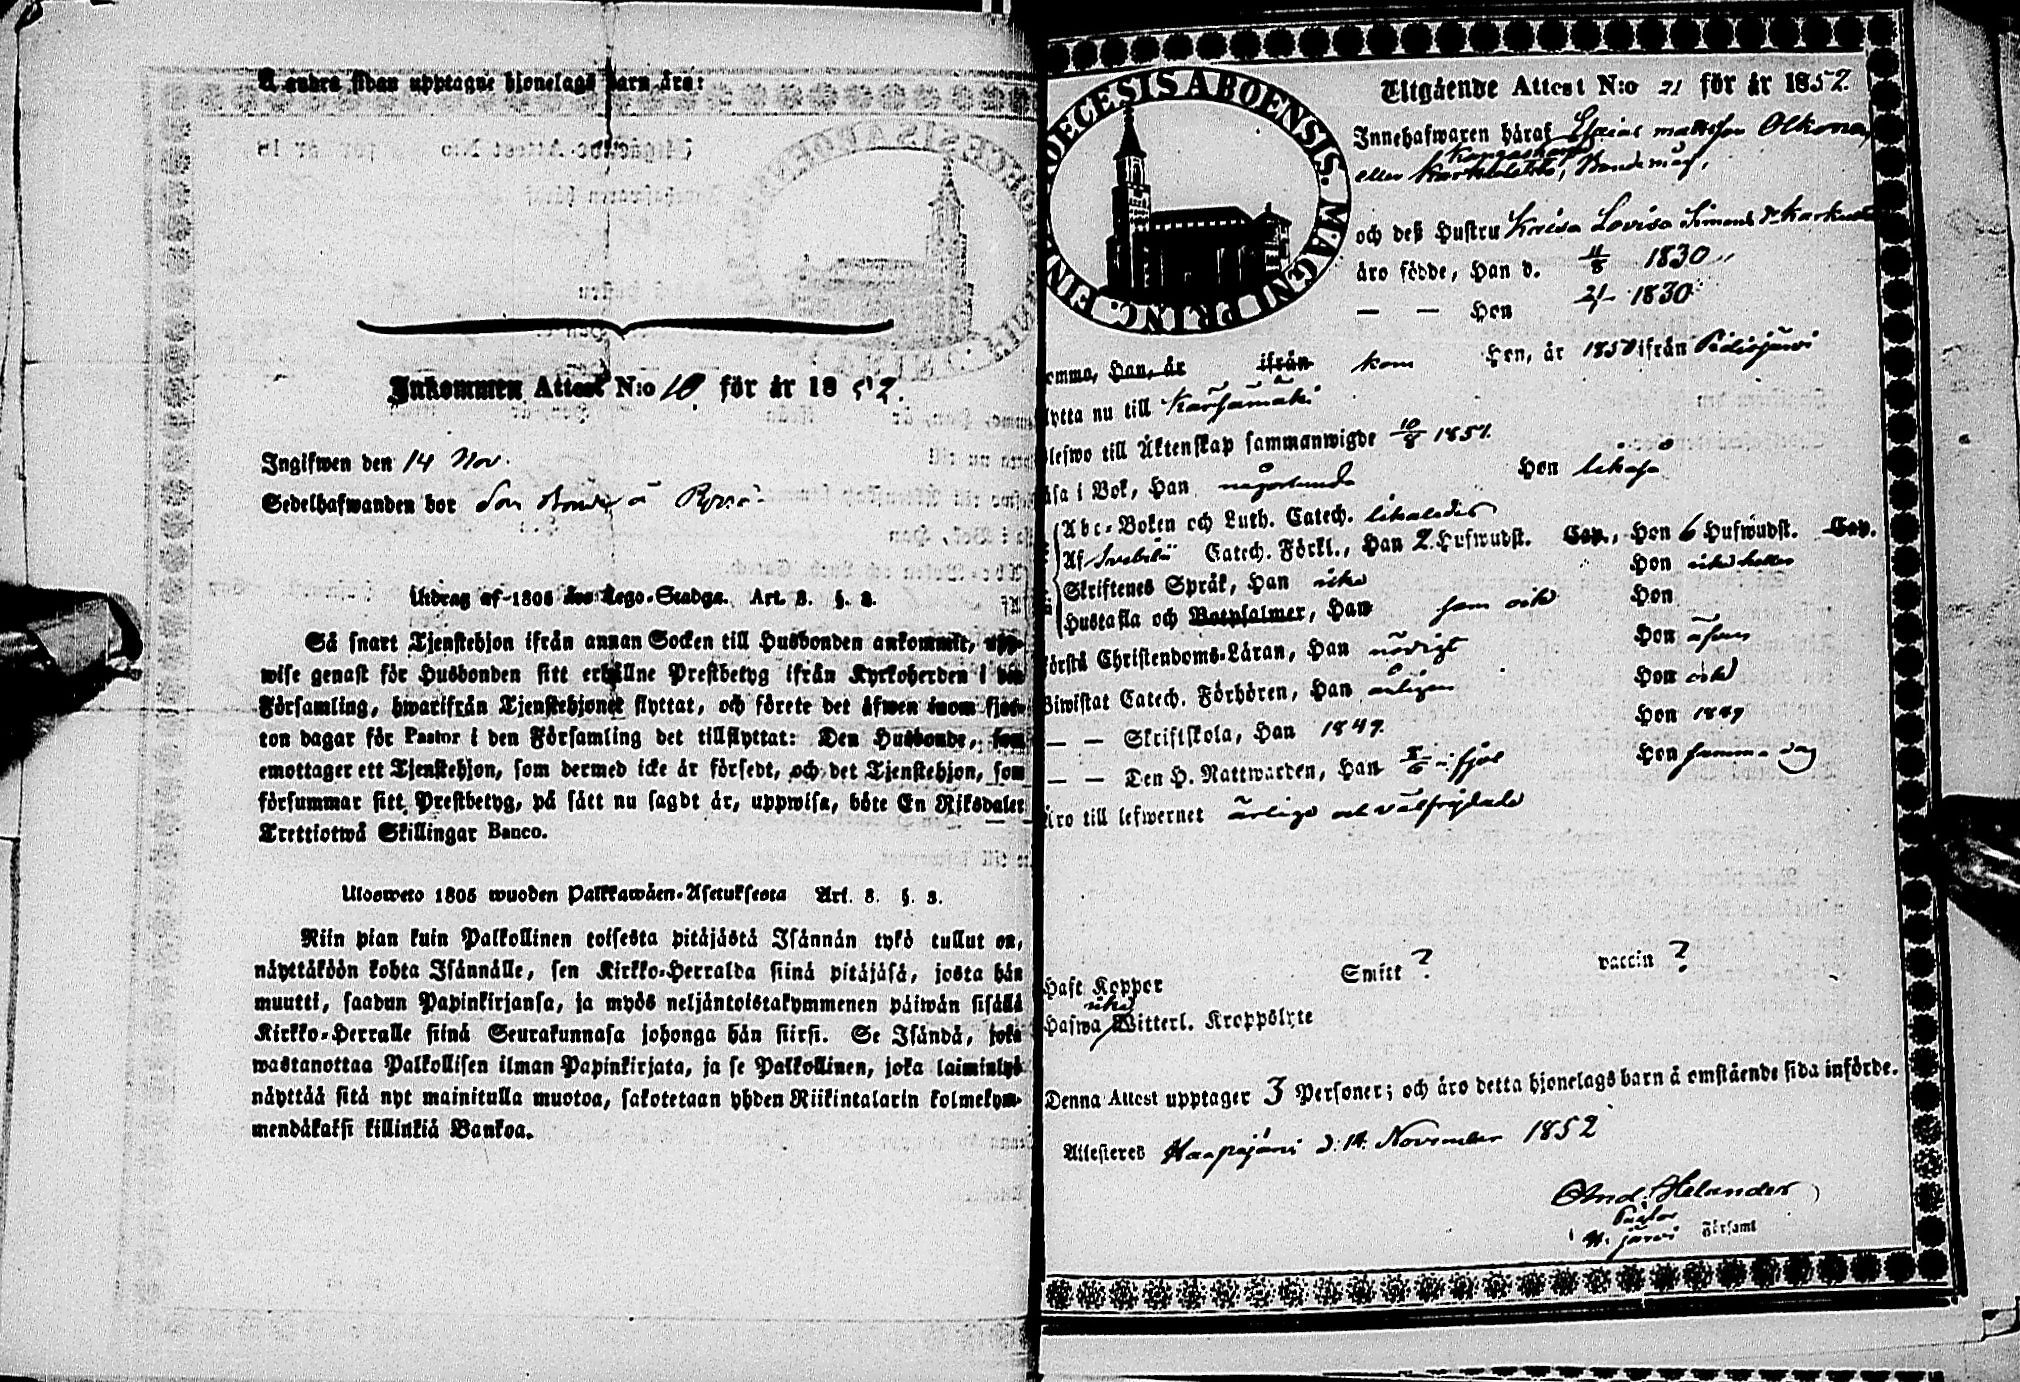 Å andra sidan upptagne hjonelags barn äro:
Inkommen Attest N:o 10 för år 1852.
Ingifwen den 14 Nov.
Sedelhafwanden bor
Utdrag af 1805 års Lego-Stadga. Art. 3. §. 3.
Så snart Tjenstehjon ifrån annan Socken till Husbonden ankommit, upp-
wise genast för Husbonden sitt erhållne Prestbetyg ifrån Kyrkoherden i den
Församling, hwarifrån Tjenstehjonet flyttat, och förete det äfwen inom fjor-
ton dagar för Pastor i den Församling det tillflyttat: Den Husbonde, som
emottager ett Tjenstehjon, som dermed icke är försedt, och det Tjenstehjon, som
försummar sitt Prestbetyg, på sätt nu sagdt är, uppwisa, böte En Riksdaler
Trettiotwå Skillingar Banco.
Ulosweto 1805 wuoden Palkkawäen-Asetuksesta Art. 3. §. 3.
Niin pian kuin Palkollinen toisesta pitäjästä Isännän tykö tullut on,
näyttäköön kohta Isännälle, sen Kirkko-Herralda siinä pitäjäsä, josta hän
muutti, saadun Papinkirjansa, ja myös neljäntoistakymmenen päiwän sisällä
Kirkko-Herralle siinä Seurakunnasa johonga hän siirsi. Se Isändä, joka
wastanottaa Palkollisen ilman Papinkirjata, ja se Palkollinen, joka laiminlyö
näyttää sitä nyt mainitulla muotoa, sakotetaan yhden Riikintalarin kolmekym-
mendäkaksi killinkiä Bankoa.
DIOECESIS ABOENSIS. MAGNI PRINC. FINL
Utgående Attest N:o 21 för år 1852.
Innehafwaren häraf Esaias Mattsson Olkona,
eller Kangaskorpi
och deß Hustru Kaisa Lovisa Simons dr
äro födde, Han d. 11/8 1830
— — Hon 1830
omma, Han, år ifrån kom Hon, år 1850 ifrån Pidisjärvi
lytta nu till Kärsämäki
blefwo till Äktenskap sammanwigde 10/8 1851.
äsa i Bok, Han någorlunda Hon likaså
Abc-Boken och Luth. Catech. likaledes
Af Svebilii Catech. Förkl., Han 2 Hufwudst. Cap., Hon 6 Hufwudst. Cap.
Skriftenes Språk, Han icke Hon icke heller
Hustafla och Botpsalmer, Han som ock Hon
örstå Christendoms-Läran, Han nödigt Hon äfven
Biwistat Catech. Förhören, Han årligen Hon ock
— — Skriftskola, Han 1847. Hon 1849
— — Den H. Nattwarden, Han Hon samma dag
Äro till lefwernet ärlige och välfrejdade
Haft Koppor Smitt ? vaccin ?
icke
Hafwa Witterl. Kroppslyte
Denna Attest upptager 3 Personer; och äro detta hjonelags barn å omstående sida införde.
Attesteres Haapajärvi d. 14 November 1852
And. Helander
Pastor
i H. järvi Församl